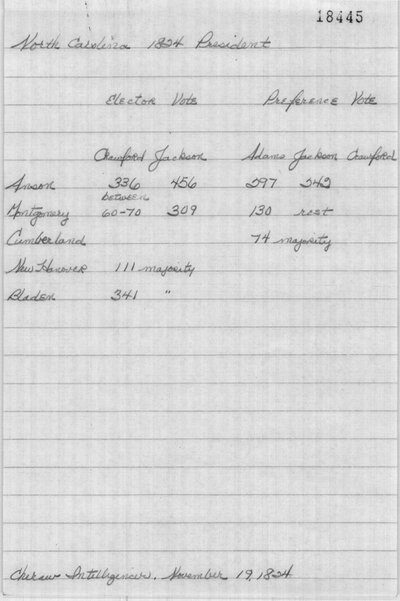 18445
North Carolina 1824 President
Elector Vote Preference Vote
Crawford Jackson Adams Jackson Crawford
Anson 336 456 297 242
between
Montgomery 60-70 309 130 rest
Cumberland 74 majority
New Hanover 111 majority
Bladen 341 "
Cheraw Intelligencer, November 19, 1824